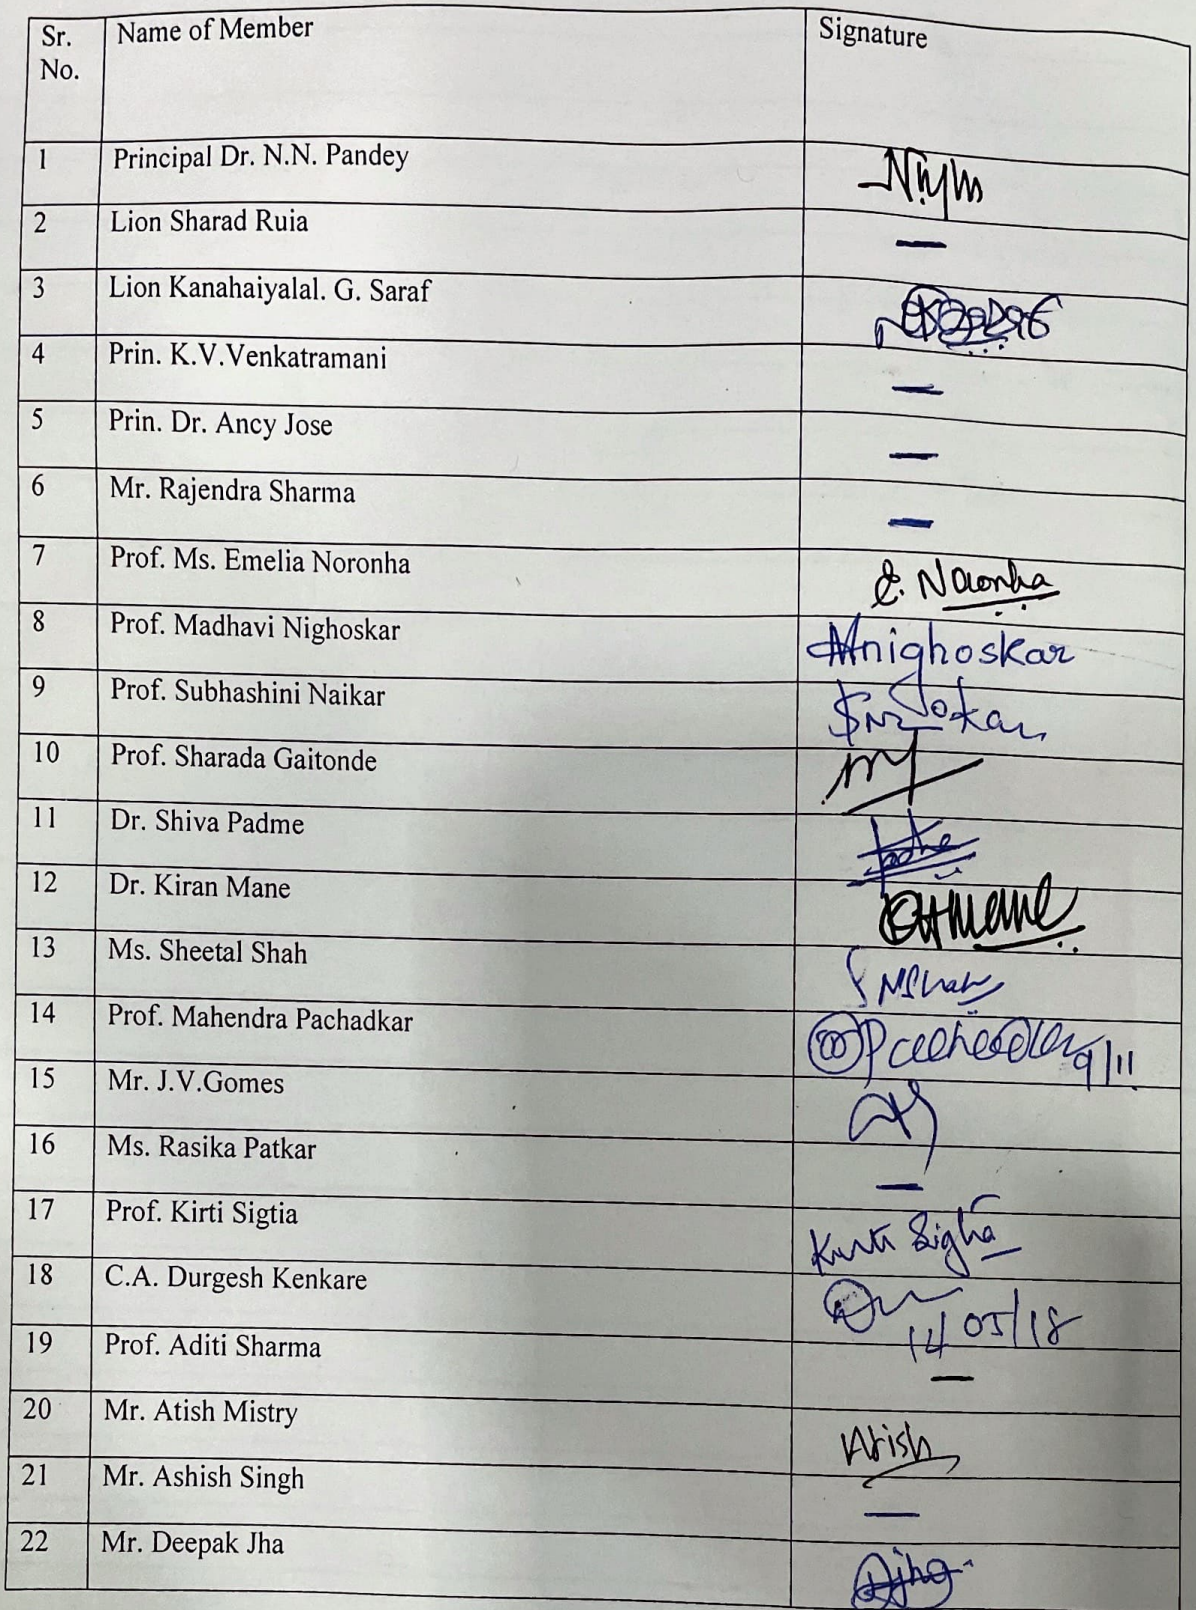 Sr. No. Name of Member Signature
1 Principal Dr. N.N. Pandey
2 Lion Sharad Ruia —
3 Lion Kanahaiyalal. G. Saraf
4 Prin. K.V.Venkatramani —
5 Prin. Dr. Ancy Jose —
6 Mr. Rajendra Sharma —
7 Prof. Ms. Emelia Noronha E. Noronha
8 Prof. Madhavi Nighoskar Mnighoskar
9 Prof. Subhashini Naikar
10 Prof. Sharada Gaitonde
11 Dr. Shiva Padme
12 Dr. Kiran Mane
13 Ms. Sheetal Shah
14 Prof. Mahendra Pachadkar 9/11
15 Mr. J.V.Gomes
16 Ms. Rasika Patkar —
17 Prof. Kirti Sigtia Kirti Sigtia
18 C.A. Durgesh Kenkare 14/05/18
19 Prof. Aditi Sharma —
20 Mr. Atish Mistry Atish
21 Mr. Ashish Singh —
22 Mr. Deepak Jha